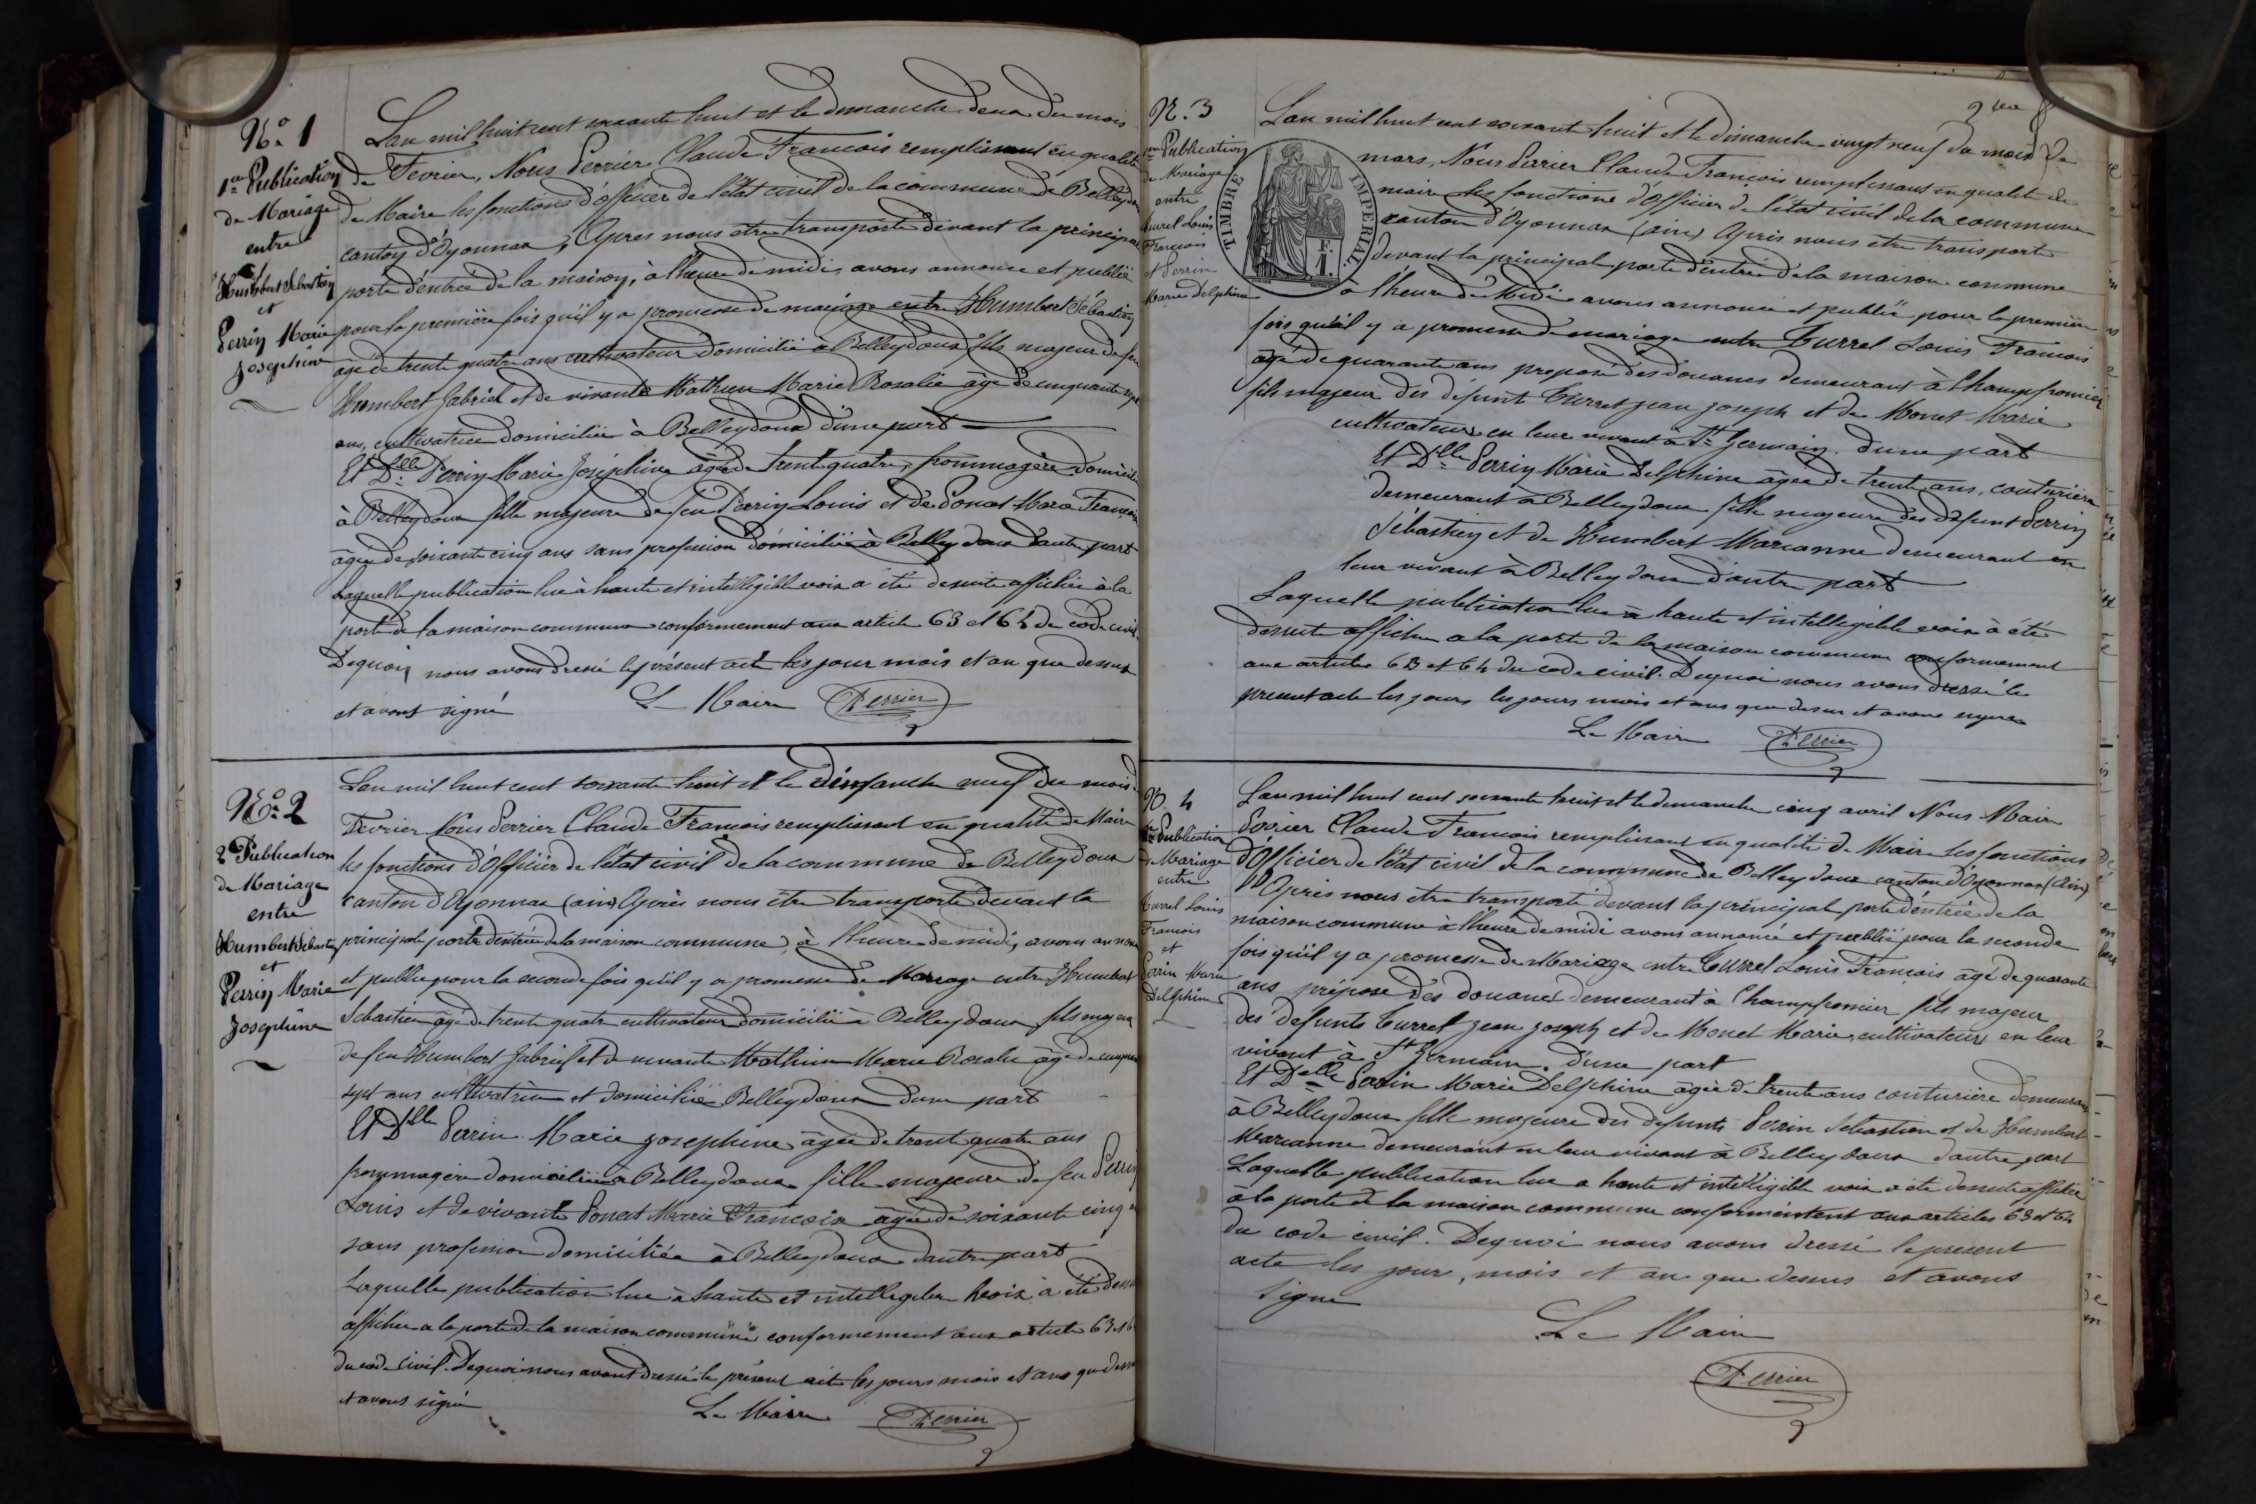 N.° 1
1re Publication
de Mariage
entre
Humbert Sébastien
et
Perrin Marie
Joséphine
L'an mil huit cent soixante huit et le dimanche deux du mois
de Fevrier, Nous Perrier Claude Francois remplissant en qualité
de Maire les fonctions d'officier de l'état civil de la commune de Belleydoux
canton d'Oyonnax, Apres nous etre transporté devant la principale
porte d'entrée de la maison, à l'heure de midi, avons annoncé et publié
pour la première fois qu'il y a promesse de mariage entre Humbert Sébastien
agé de trente quatre ans cultivateur domicilié à Belleydoux fils majeur de feu
Humbert Gabriel et de vivante Mathieu Marie Rosalie âgé de cinquante sept
ans, cultivatrice domiciliée à Belleydoux d'une part
Et Dlle Perrin Marie Joséphine âgée de trente quatre, frommagère domiciliée
à Belleydoux fille majeure de feu Perrin Louis et de Poncet Marie Francoise
agée de soixante cinq ans sans profession domiciliée à Belleydoux d'autre part
Laquelle publication lue à haute et intelligible voix a été desuite affichée à la
porte de la maison commune conformement aux article 63 et 64 du code civil.
Dequoi nous avons dressé le présent acte les jour mois et an que dessus
et avons signé
Le Maire Perrier
N.° 2
2e Publication
de Mariage
entre
Humbert Sébastien
et
Perrin Marie
Joséphine
L'an mil huit cent soixante huit et le dimanche neuf du mois de
Fevrier Nous Perrier Claude Francois remplissant en qualité de Maire
les fonctions d'Officier de l'état civil de la commune de Belleydoux
canton d'Oyonnax (ain) Après nous être transporté devant la
principale porte d'entrée de la maison commune, à l'heure de midi, avons annoncé
et publié pour la seconde fois qu'il y a promesse de Mariage entre Humbert
Sébastien agé de trente quatre cultivateur domicilié à Belleydoux fils majeur
de feu Humbert Gabriel et de vivante Mathieu Marie Rosalie âgé de cinquante
sept ans cultivatrice et domiciliée Belleydoux d'une part
Et Dlle Perrin Marie Josephine âgée de trente quatre ans
frommagère domiciliée à Belleydoux fille majeure de feu Perrin
Louis et de vivante Poncet Marie Francoise agée de soixante cinq ans
sans profession domiciliée à Belleydoux d'autre part
Laquelle publication lue à haute et intelligible voix à été desuite
affichée a la porte de la maison commune conformement aux article 63 et 64
du code civil. Dequoi nous avons dressé le présent acte les jours mois et ans que dessus
et avons signé
Le Maire Perrier
N. 3
1re Publication
de Mariage
entre
Turrel Louis
François
et Perrin
Marie Delphine
TIMBRE IMPERIAL
L'an mil huit cent soixante huit et le dimanche vingt neuf du mois de
mars, Nous Perrier Claude François remplissant en qualité de
maire les fonctions d'Officier de l'état civil de la commune
canton d'Oyonnax (ain) Après nous être transporté
devant la principal porte d'entrée de la maison commune
à l'heure de Midi avons annoncé et publié pour la première
fois qu'il y a promesse de mariage entre Turrel Louis François
âgé de quarante ans préposé des douanes demeurant à Champfromier
fils majeur des défunt Turrel jean joseph et de Monet Marie
cultivateurs en leur vivant à St Germain. d'une part
Et Dlle Perrin Marie Delphine âgée de trente ans, couturière
demeurant à Belleydoux fille majeure des défunt Perrin
Sébastien et de Humbert Marianne demeurant en
leur vivant à Belleydoux d'autre part
Laquelle publication lue à haute et intelligible voix à été
desuite affichée a la porte de la maison commune conformement
aux articles 63 et 64 du code civil. Dequoi nous avons dressé le
present acte les jours les jours mois et ans que dessus et avons signé
Le Maire Perrier
N. 4
2e Publication
de Mariage
entre
Turrel Louis
Francois
et
Perrin Marie
Delphine
L'an mil huit cent soixante huit et le dimanche cinq avril Nous Maire
Perrier Claude Francois remplissant en qualité de Maire les fonctions
d'Officier de l'état civil de la commune de Belleydoux canton d'Oyonnax (Ain)
Après nous être transporté devant la principal porte d'entrée de la
maison commune à l'heure de midi avons annoncé et publié pour la seconde
fois qu'il y a promesse de Mariage entre Turrel Louis Francois âgé de quarante
ans préposé des douanes demeurant à Champfromier fils majeur
des défunts Turrel jean joseph et de Monet Marie, cultivateurs en leur
vivant à St Germain. d'une part
Et Delle Perrin Marie Delphine agée de trente ans couturière demeurant
à Belleydoux fille majeure des defunts Perrin Sébastien et de Humbert
Marianne demeurant en leur vivant à Belleydoux d'autre part
Laquelle publication lue a haute et intelligible voix a été desuite affichée
à la porte de la maison commune conformément aux articles 63 et 64
du code civil. Dequoi nous avons dressé le present
acte les jour, mois et an que dessus et avons
signé
Le Maire
Perrier